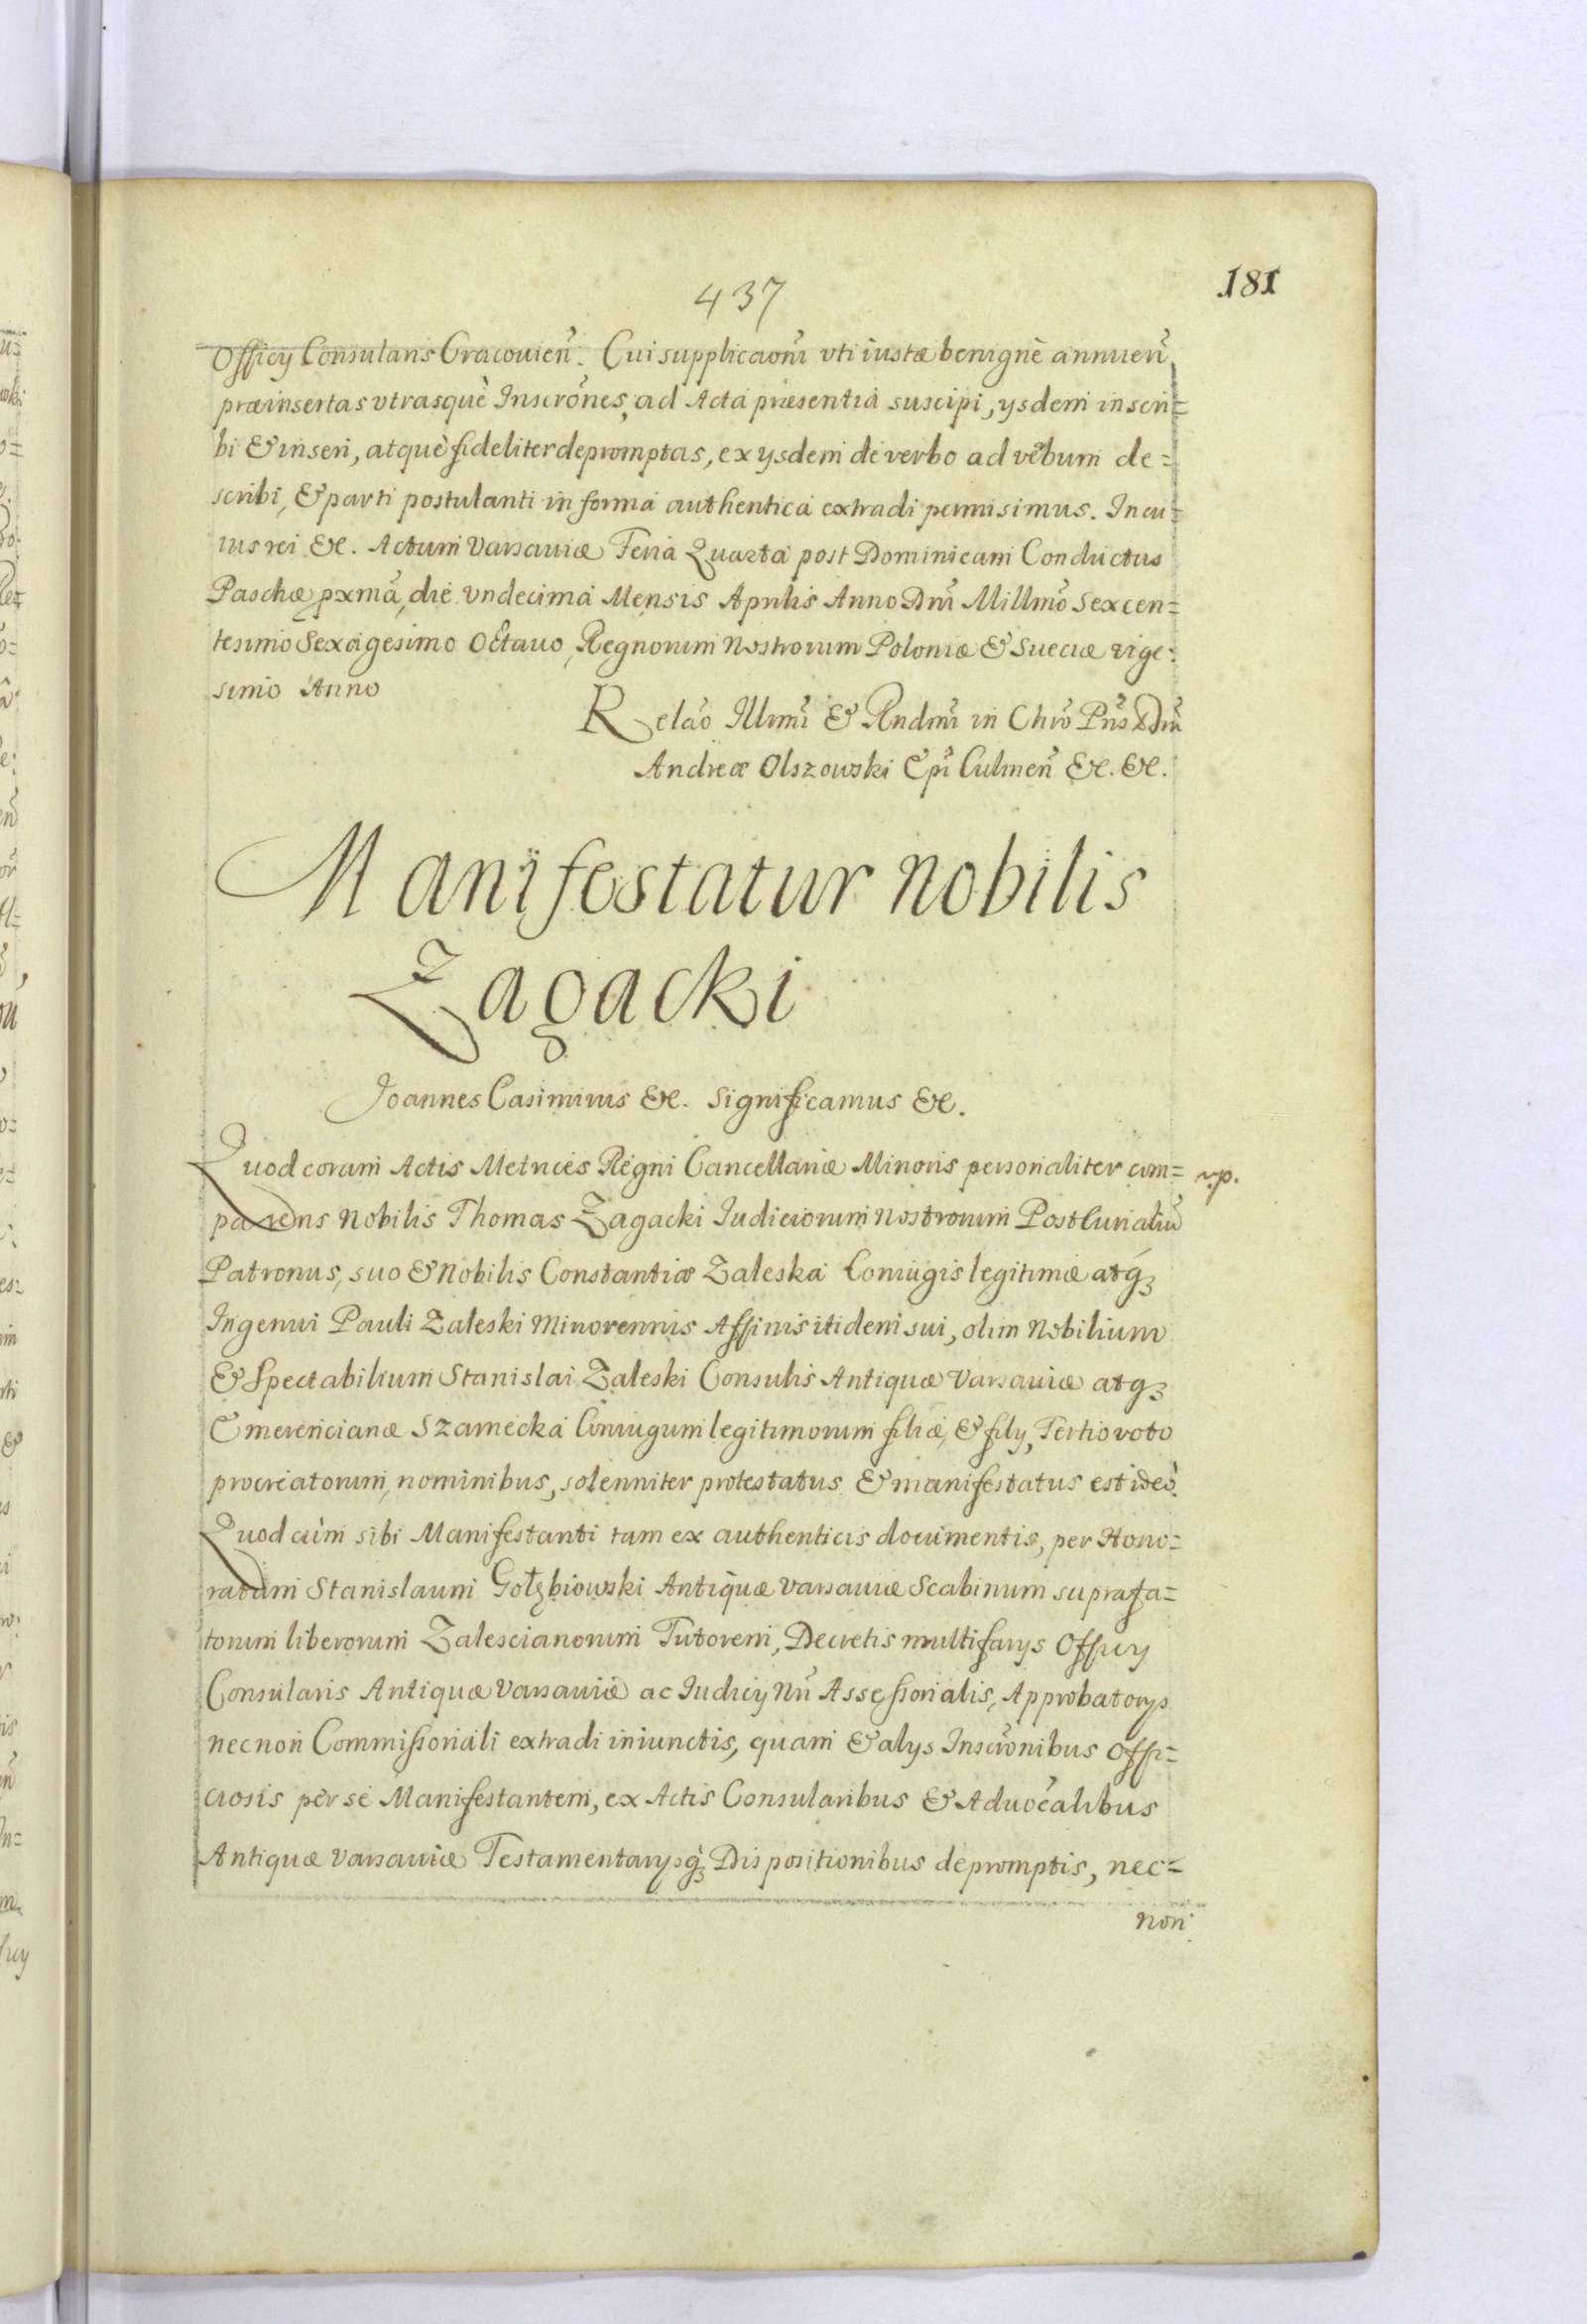 437
181
Officÿ Consularis Cracouien̄. Cui supplicaōni vti iustæ benignè annuen̄,
præinsertas vtrasquè Inscrōnes, ad Acta præsentia suscipi, ysdem inscri=
bi & inseri, atquè fideliter depromptas, ex ysdem de verbo ad verbum de=
scribi, & parti postulanti in forma authentica extradi permisimus. In cu=
ius rei &c. Actum Varsauiæ Feria Quarta post Dominicam Conductus
Paschæ pxmā, die vndecima Mensis Aprilis Anno Dnī Millmō Sexcen=
tesimo Sexagesimo Octauo, Regnorum Nostrorum Poloniæ & Sueciæ vige=
simo Anno
Relaō Illmī & Rndmī in Chrō Pris Dnī
Andreæ Olszowski Epī Culmen̄ &c. &c.
Manifestatur nobilis
Zagacki
Joannes Casimirus &c. Significamus &c.
Quod coram Actis Metrices Regni Cancellariæ Minoris personaliter com= rp.
parens Nobilis Thomas Zagacki Iudiciorum Nostrorum PostCurialiū
Patronus, suo & Nobilis Constantiæ Zaleska Coniugis legitimæ atq3
Ingenui Pauli Zaleski Minorennis Affinis itidem sui, olim Nobilium
& Spectabilium Stanislai Zaleski Consulis Antiquæ Varsauiæ atq3
Emerencianæ Szamecka Coniugum legitimorum filiæ, & fily, Tertio voto
procreatorum, nominibus, solenniter protestatus & manifestatus est ideò.
Quod cùm sibi Manifestanti tam ex authenticis documentis, per Hono=
ratum Stanislaum Gołębiowski Antiquæ Varsauiæ Scabinum suprafa=
torum liberorum Zalescianorum Tutorem, Decretis multifarys Officy
Consularis Antiquæ Varsauiæ ac Iudicy Nrī Assessorialis, Approbatorys
necnon Commissoriali extradi iniunctis, quam & alys Inscrōnibus offi=
ciosis per se Manifestantem, ex Actis Consularibus & Aduocalibus
Antiquæ Varsauiæ Testamentarysq3 Dispositionibus depromptis, nec=
non